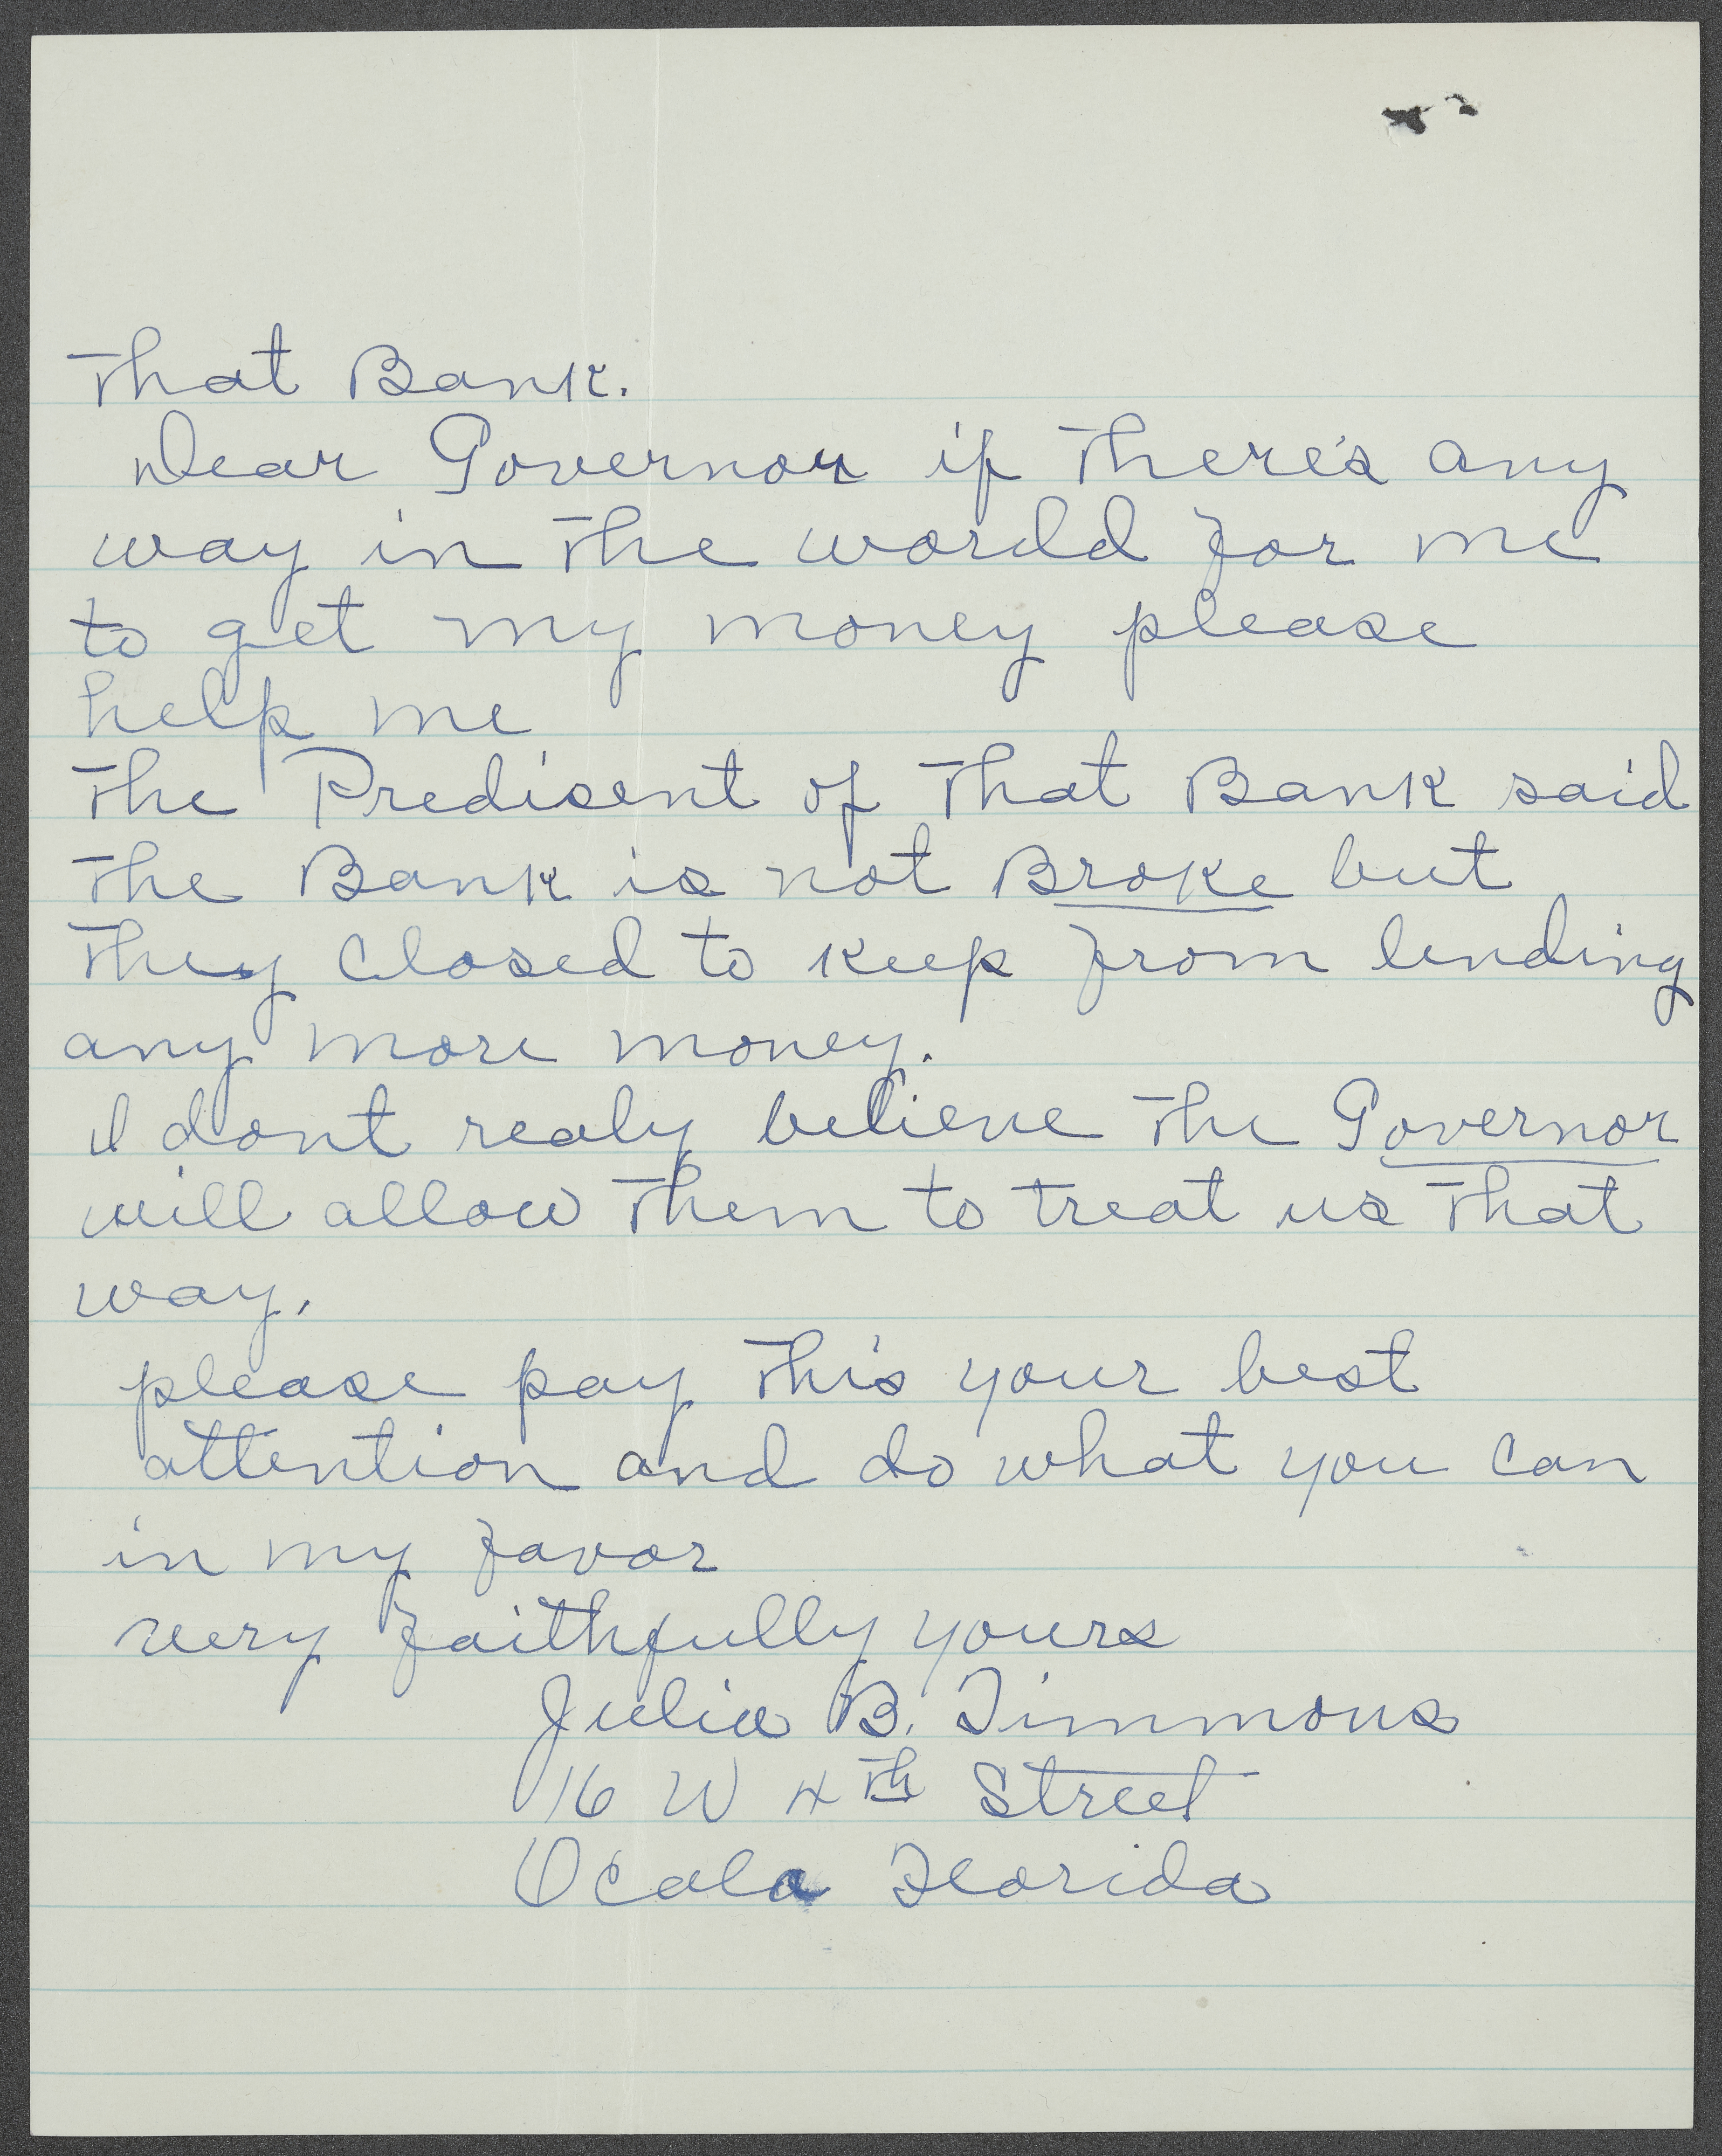 That Bank.
Dear Governor if there's any
way in the world for me
to get my money please
help me
The Predisent of that Bank said
the Bank is not Broke but
they closed to keep from lending
any more money.
I dont realy believe the Governor
will allow them to treat us that
way.
please pay this your best
attention and do what you can
in my favor
very faithfully yours
Julia B. Timmons
16 W 4th Street
Ocala Florida